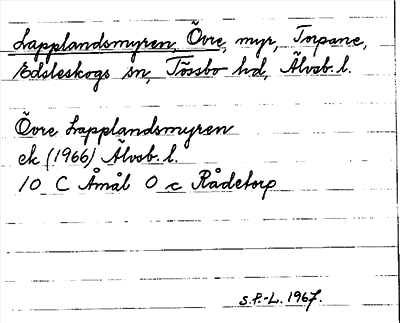 Lapplandsmyren, Övre, myr, Torpane,
Edsleskogs sn, Tössbo hd, Älvsb. l.
Övre Lapplandsmyren
ek (1966) Älvsb. l.
10 C Åmål O c Rådetorp
S.P.-L. 1967.